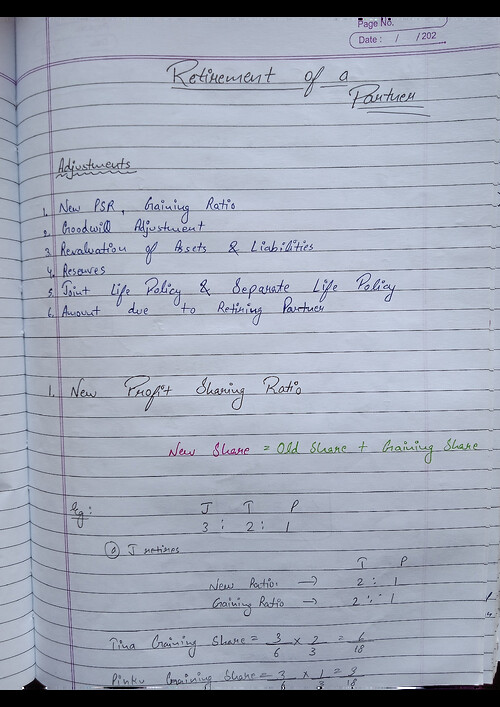 Page No.
Date : / /202
Retirement of a
Partner
Adjustments
1. New PSR, Gaining Ratio
2. Goodwill Adjustment
3. Revaluation of Assets & Liabilities
4. Reserves
5. Joint Life Policy & Separate Life Policy
6. Amount due to Retiring Partner
1. New Profit Sharing Ratio
New Share = Old Share + Gaining Share
Eg: J T P
3 : 2 : 1
a J retires
T P
New Ratio → 2 : 1
Gaining Ratio → 2 : 1
Tina Gaining Share = 3/6 x 2/3 = 6/18
Pinku Gaining Share = 3/6 x 1/3 = 3/18